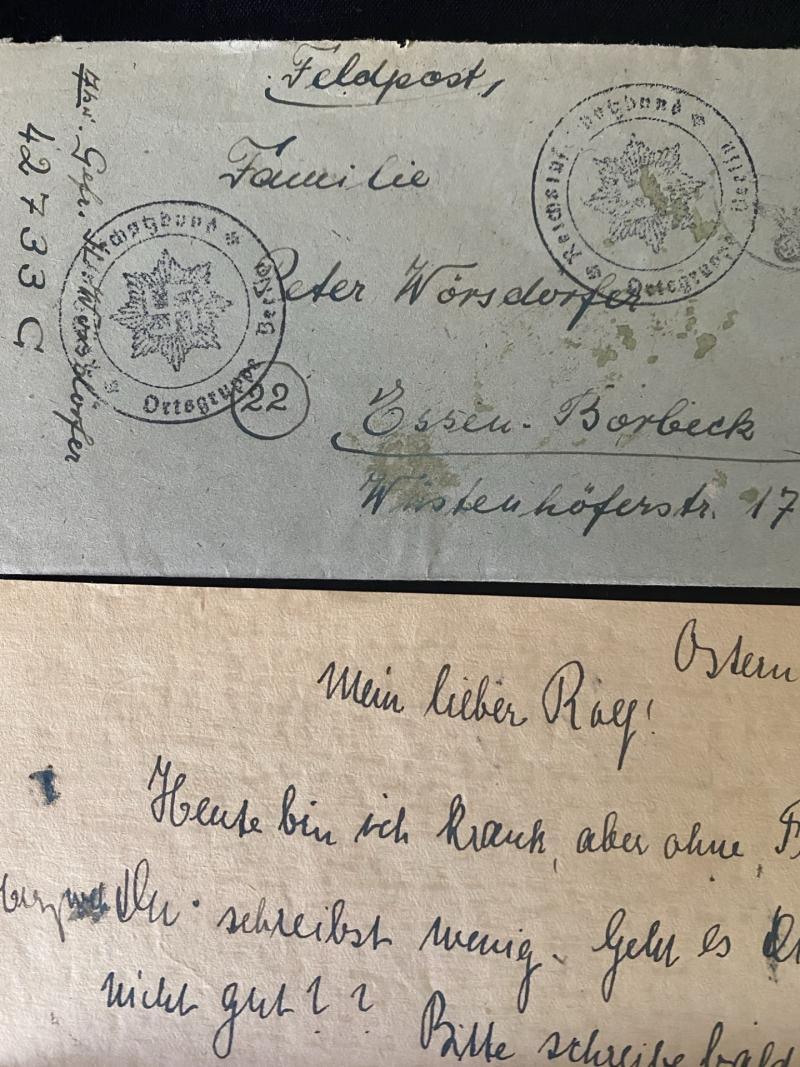 Feldpost,
Familie
Peter Wörsdorfer
22
Essen-Borbeck
Wüstenhöferstr. 17
Abs. Gefr. Wörsdörfer
42733 C
Reichsluftschutzbund Ortsgruppe
Reichsluftschutzbund Ortsgruppe
Ostern
Mein lieber
Heute bin ich krank, aber ohne
Du schreibst wenig. Geht es
nicht gut??
Bitte schreibe bald